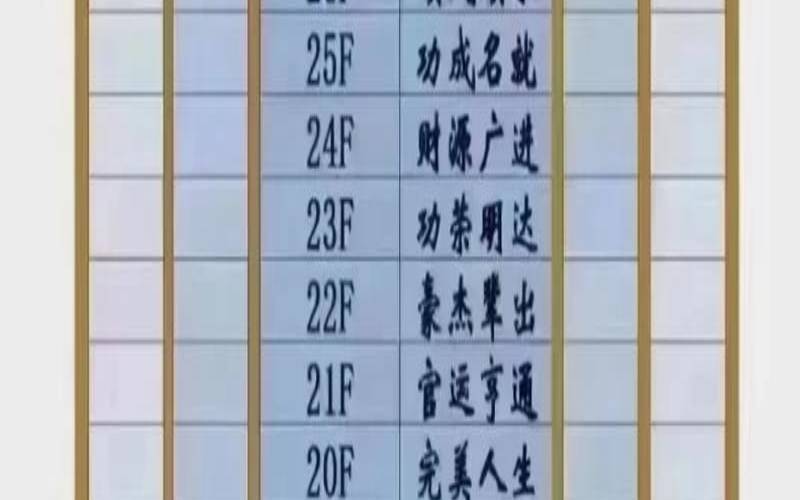 25F 功成名就
24F 财源广进
23F 功荣明达
22F 豪杰辈出
21F 官运亨通
20F 完美人生